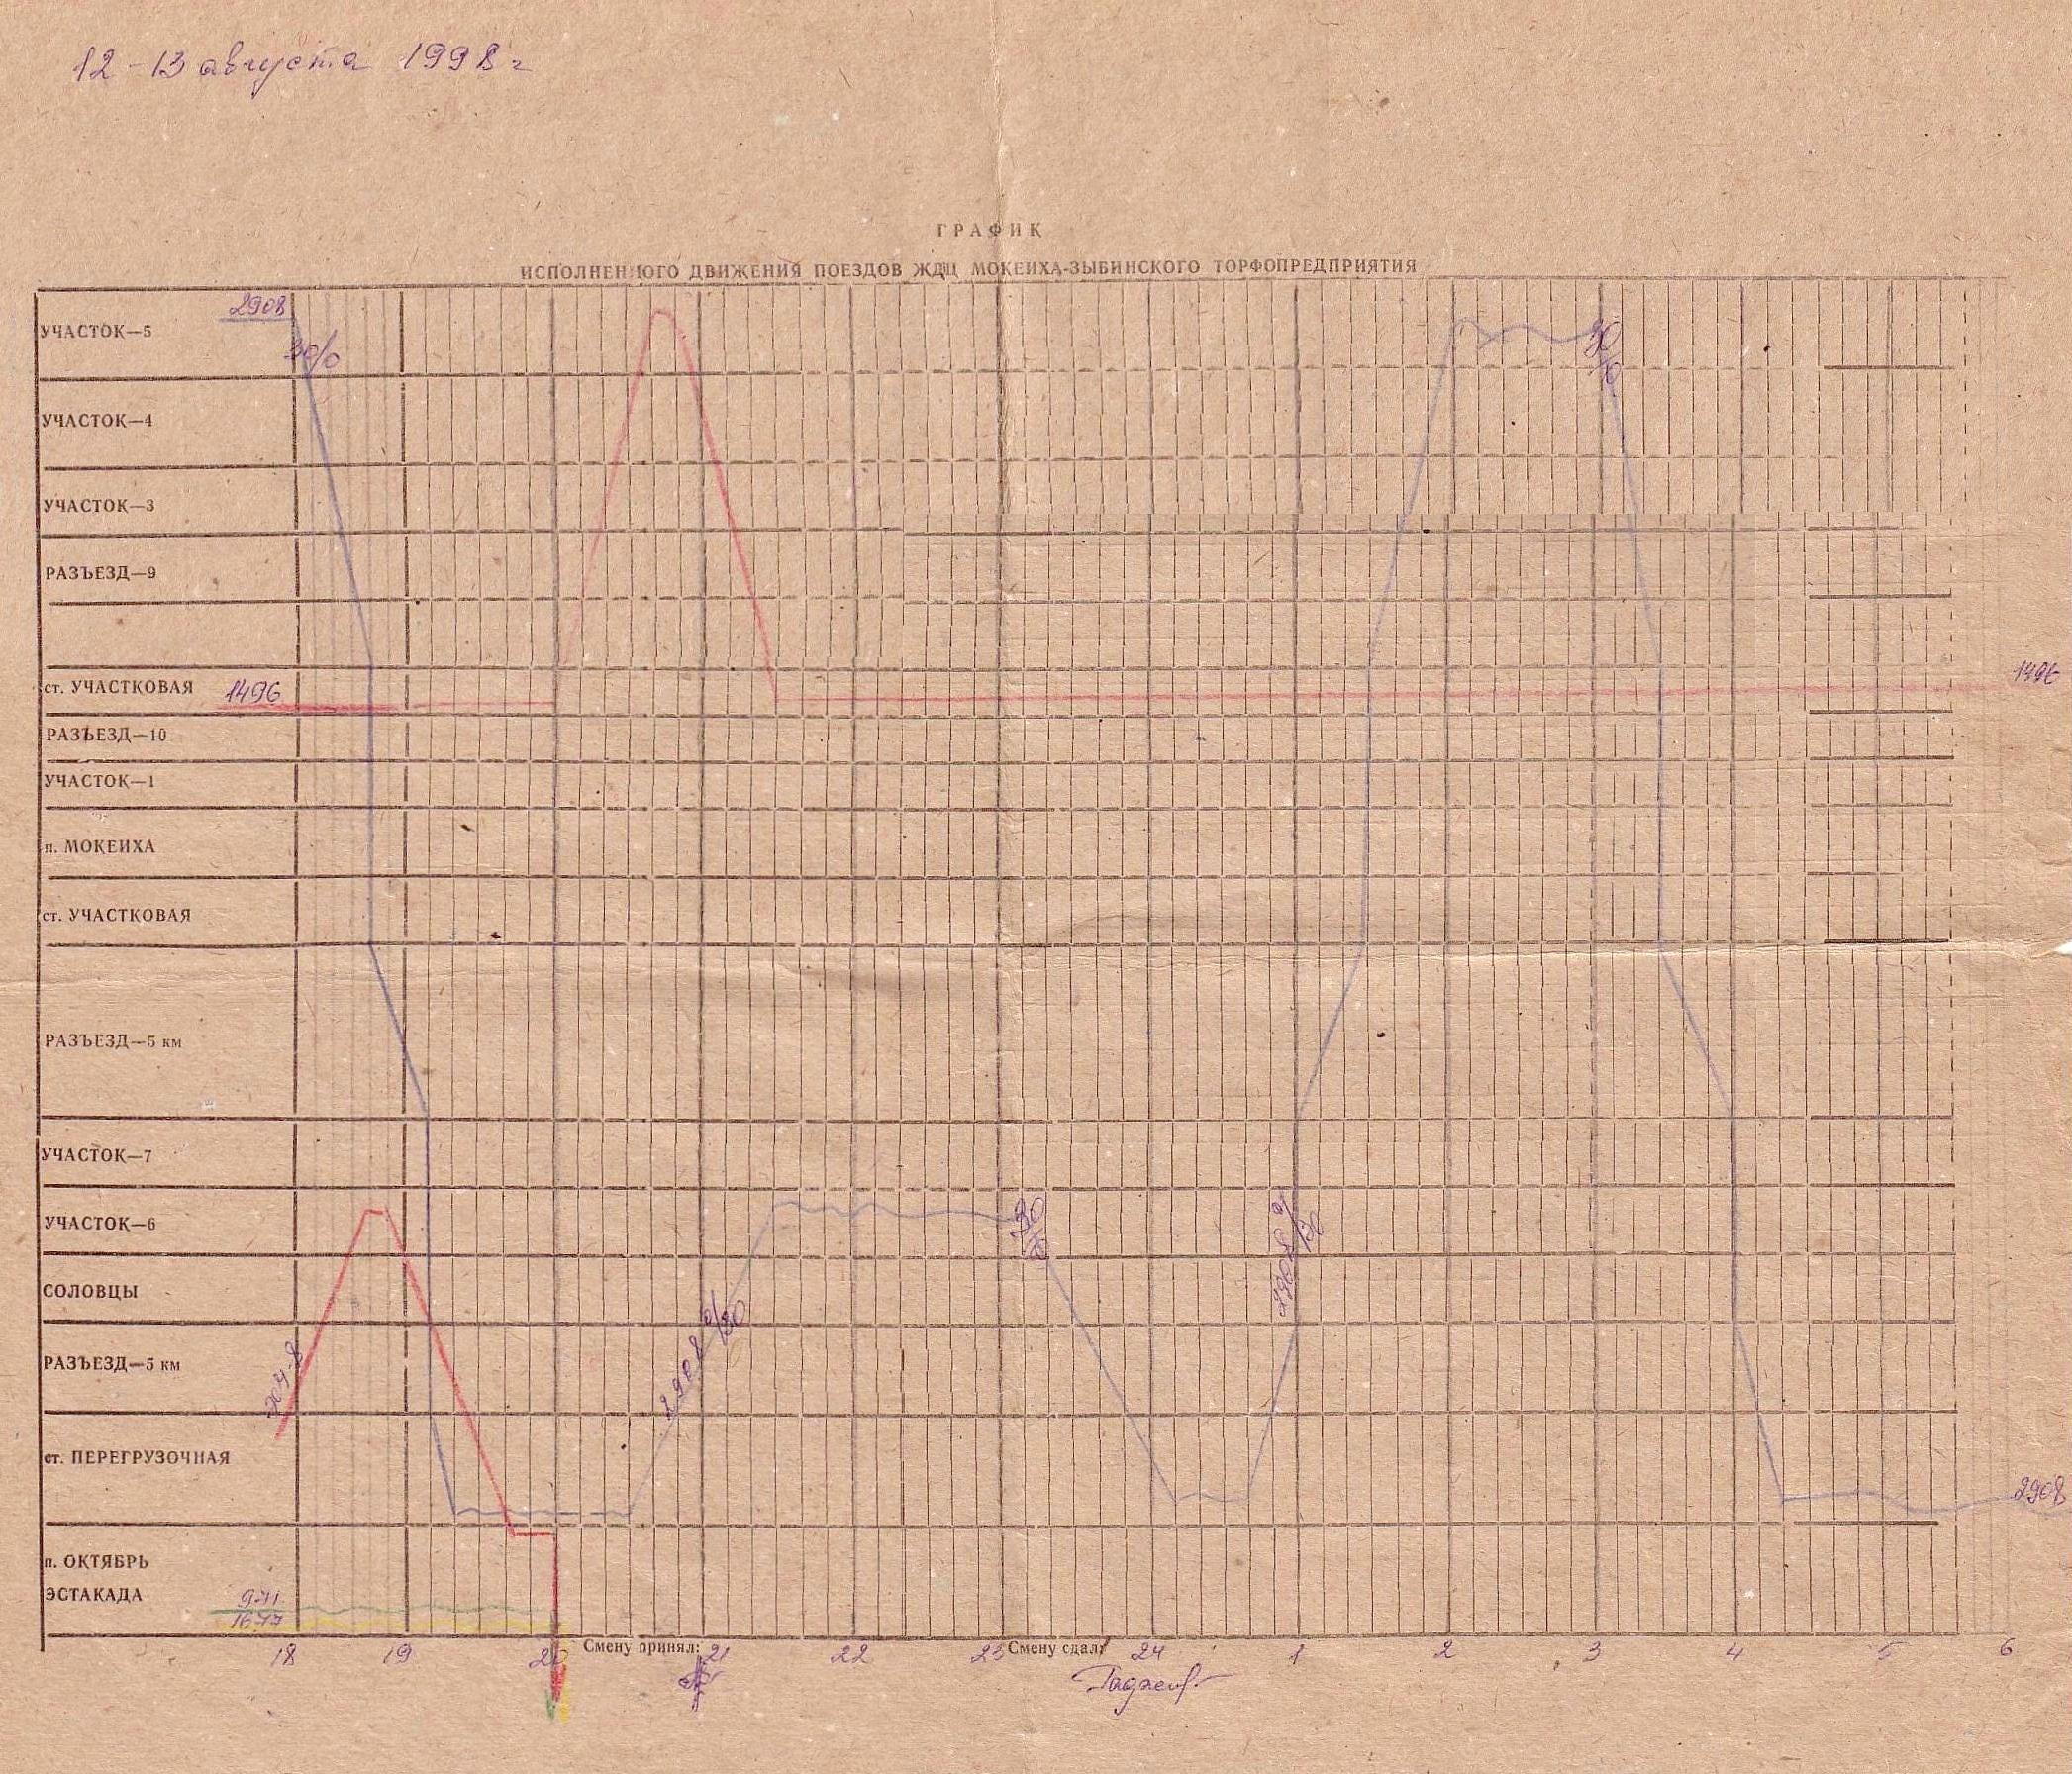 12-13 августа 1998 г
ГРАФИК
ИСПОЛНЕННОГО ДВИЖЕНИЯ ПОЕЗДОВ ЖДЦ МОКЕИХА-ЗЫБИНСКОГО ТОРФОПРЕДПРИЯТИЯ
2908
УЧАСТОК—5
30/0
30/0
УЧАСТОК—4
УЧАСТОК—3
РАЗЪЕЗД—9
ст. УЧАСТКОВАЯ 1496
1496
РАЗЪЕЗД—10
УЧАСТОК—1
п. МОКЕИХА
ст. УЧАСТКОВАЯ
РАЗЪЕЗД—5 км
УЧАСТОК—7
УЧАСТОК—6
30/0
2908 0/30
СОЛОВЦЫ
2908 0/30
РАЗЪЕЗД—5 км
ст. ПЕРЕГРУЗОЧНАЯ
2908
п. ОКТЯБРЬ
ЭСТАКАДА
971
1677
18 19 20 Смену принял: 21 22 23 Смену сдал: 24 1 2 3 4 5 6